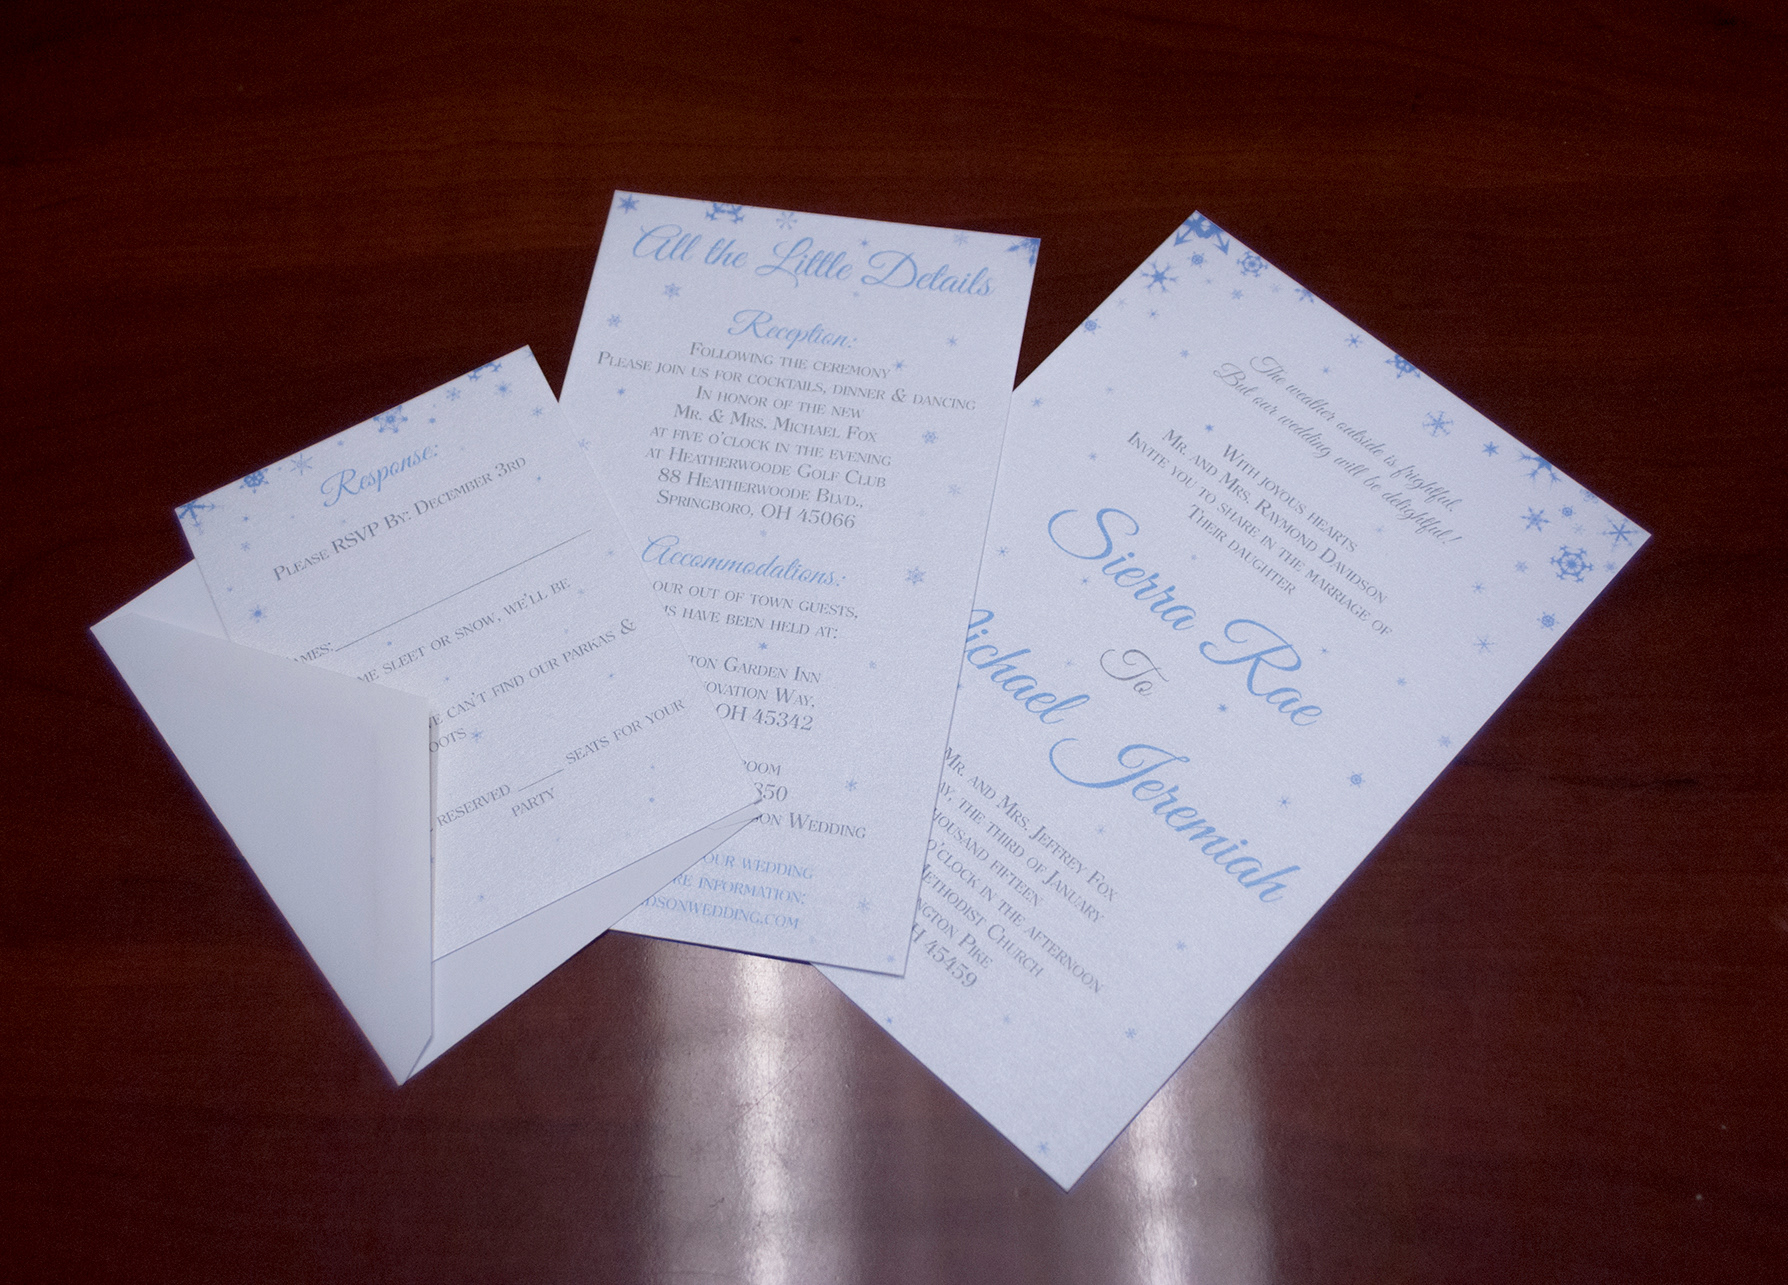 Response:
PLEASE RSVP BY: DECEMBER 3RD
SLEET OR SNOW, WE'LL BE
CAN'T FIND OUR PARKAS &
RESERVED ____ SEATS FOR YOUR
PARTY
All the Little Details
Reception:
FOLLOWING THE CEREMONY
PLEASE JOIN US FOR COCKTAILS, DINNER & DANCING
IN HONOR OF THE NEW
MR. & MRS. MICHAEL FOX
AT FIVE O'CLOCK IN THE EVENING
AT HEATHERWOODE GOLF CLUB
88 HEATHERWOODE BLVD.,
SPRINGBORO, OH 45066
Accommodations:
OUR OUT OF TOWN GUESTS,
HAVE BEEN HELD AT:
GARDEN INN
WAY,
OH 45342
WEDDING
OUR WEDDING
INFORMATION:
The weather outside is frightful,
But our wedding will be delightful!
WITH JOYOUS HEARTS
MR. AND MRS. RAYMOND DAVIDSON
INVITE YOU TO SHARE IN THE MARRIAGE OF
THEIR DAUGHTER
Sierra Rae
To
Michael Jeremiah
MR. AND MRS. JEFFREY FOX
THE THIRD OF JANUARY
FIFTEEN
O'CLOCK IN THE AFTERNOON
METHODIST CHURCH
PIKE
45459